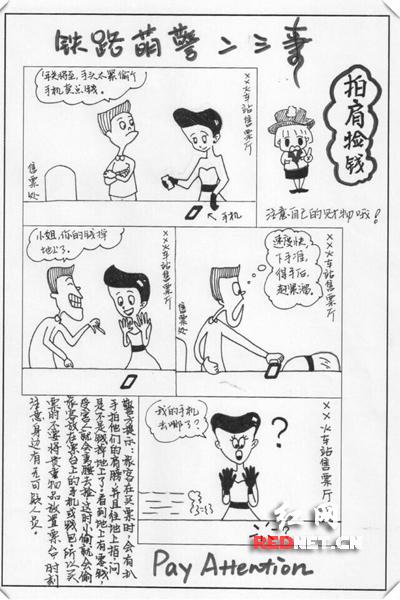 铁路萌警二三事
拍肩捡钱
年关将至,手头太紧偷个
手机卖点钱。
××火车站售票厅
售票处
手机
注意自己的财物哦!
小姐,你的钱掉
地上了。
××火车站售票厅
速度快,
下手准,
得手后,
赶紧溜。
××火车站售票厅
售票处
我的手机
去哪了?
?
××火车站售票厅
警方提示:旅客在买票时,会有扒
手拍他们的肩膀,并且往地上指,问
是不是钱掉地上了,看到地上有零钱,
人就会弯腰去捡,这时小偷就会偷
旅客放在票台上的手机或钱包。所以买
票时不要将贵重物品放置票台,时刻
注意身边有无可疑人员。
Pay Attention
红网
REDNET.CN